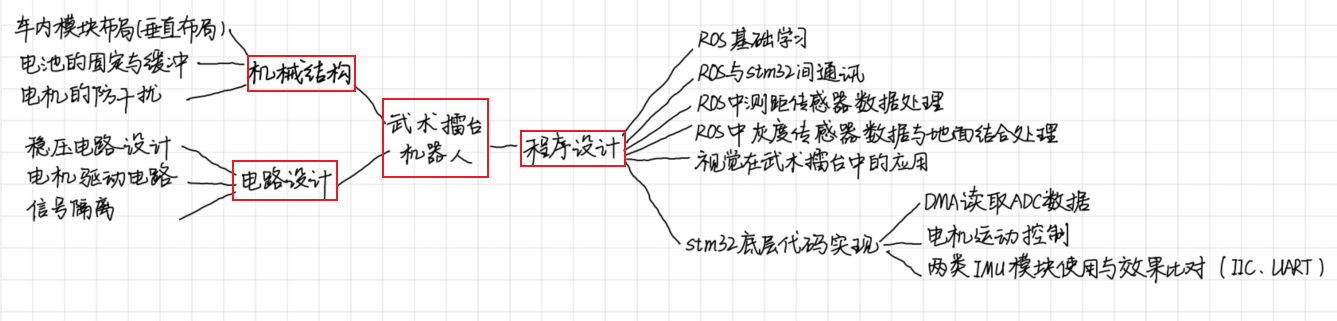 车内模块布局(垂直布局)
电池的固定与缓冲
电机的防干扰
机械结构
稳压电路设计
电机驱动电路
信号隔离
电路设计
武术擂台
机器人
程序设计
ROS基础学习
ROS与stm32间通讯
ROS中测距传感器数据处理
ROS中灰度传感器数据与地面结合处理
视觉在武术擂台中的应用
stm32底层代码实现
DMA读取ADC数据
电机运动控制
两类IMU模块使用与效果比对（IIC、UART）